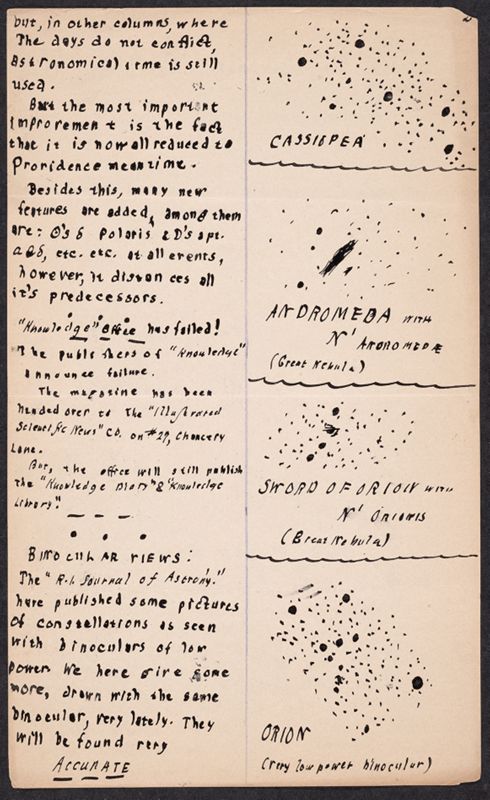 but, in other columns, where
The days do not conflict,
astronomical time is still
used.
But the most important
improrement is the fact
that it is now all reduced to
Proridence meantime.
Besides this, many new
features are added, among them
are: O's & Polaris & D's apt.
a&δ, etc. etc. at all erents,
however, it distances all
it's predecessors.
"Knowledge" office has failed!
The publishers of "Knowledge"
announce failure.
The magazine has been
handed over to The "Illustrated
Scientific News" CO. on #29, Chancery
Lane.
But, the office will still publish
the "Knowledge Diary" & "Knowledge
Library".
BINOCULAR VIEWS:
The "R.I. Journal of Astrony."
hare published some pictures
of constellations as seen
with binoculars of low
power. We here gire some
more, drawn with the same
binocular, rery lately. They
will be found rery
ACCURATE
CASSIOPEA
ANDROMEDA WITH
N' ANDROMEDÆ
(Great Nebula)
SWORD OF ORION WITH
N' ORIONIS
(Great Nebula)
ORION
(rery low power binocular)